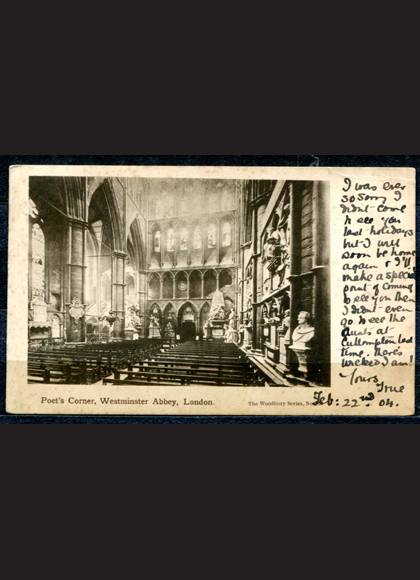 I was ever
so sorry I
didnt come
to see you
last holidays
but I will
soon be home
again & I'll
make a special
point of coming
to see you then.
I didnt even
go to see the
Aunts at
Cullompton last
time. There's
wicked I am!
Yours
Feb: 22nd 04.
Poet's Corner, Westminster Abbey, London.
The Woodbury Series,